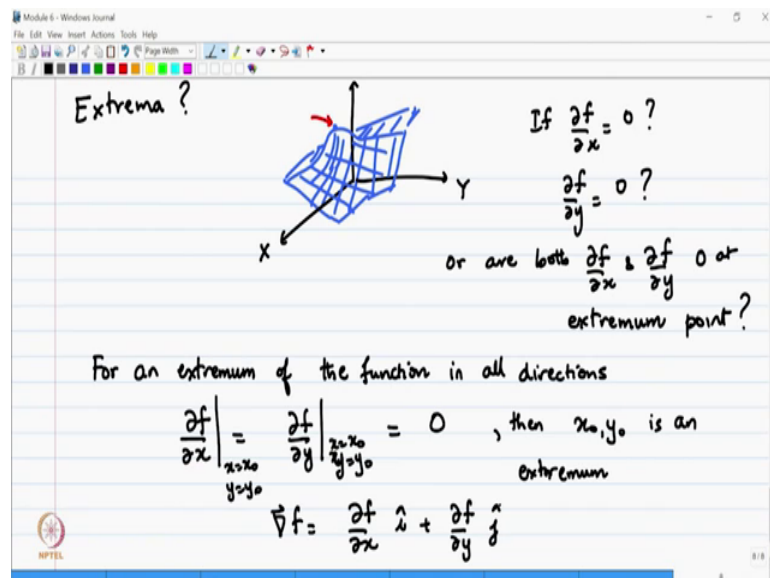 Module 6 - Windows Journal
File Edit View Insert Actions Tools Help
Page Width
B I
Extrema ?
Y
X
If ∂f/∂x = 0 ?
∂f/∂y = 0 ?
or are both ∂f/∂x & ∂f/∂y 0 at
extremum point ?
For an extremum of the function in all directions
∂f/∂x |x=x₀ y=y₀ = ∂f/∂y |x=x₀ y=y₀ = 0 , then x₀, y₀ is an
extremum
∇⃗f = ∂f/∂x î + ∂f/∂y ĵ
NPTEL
8/8